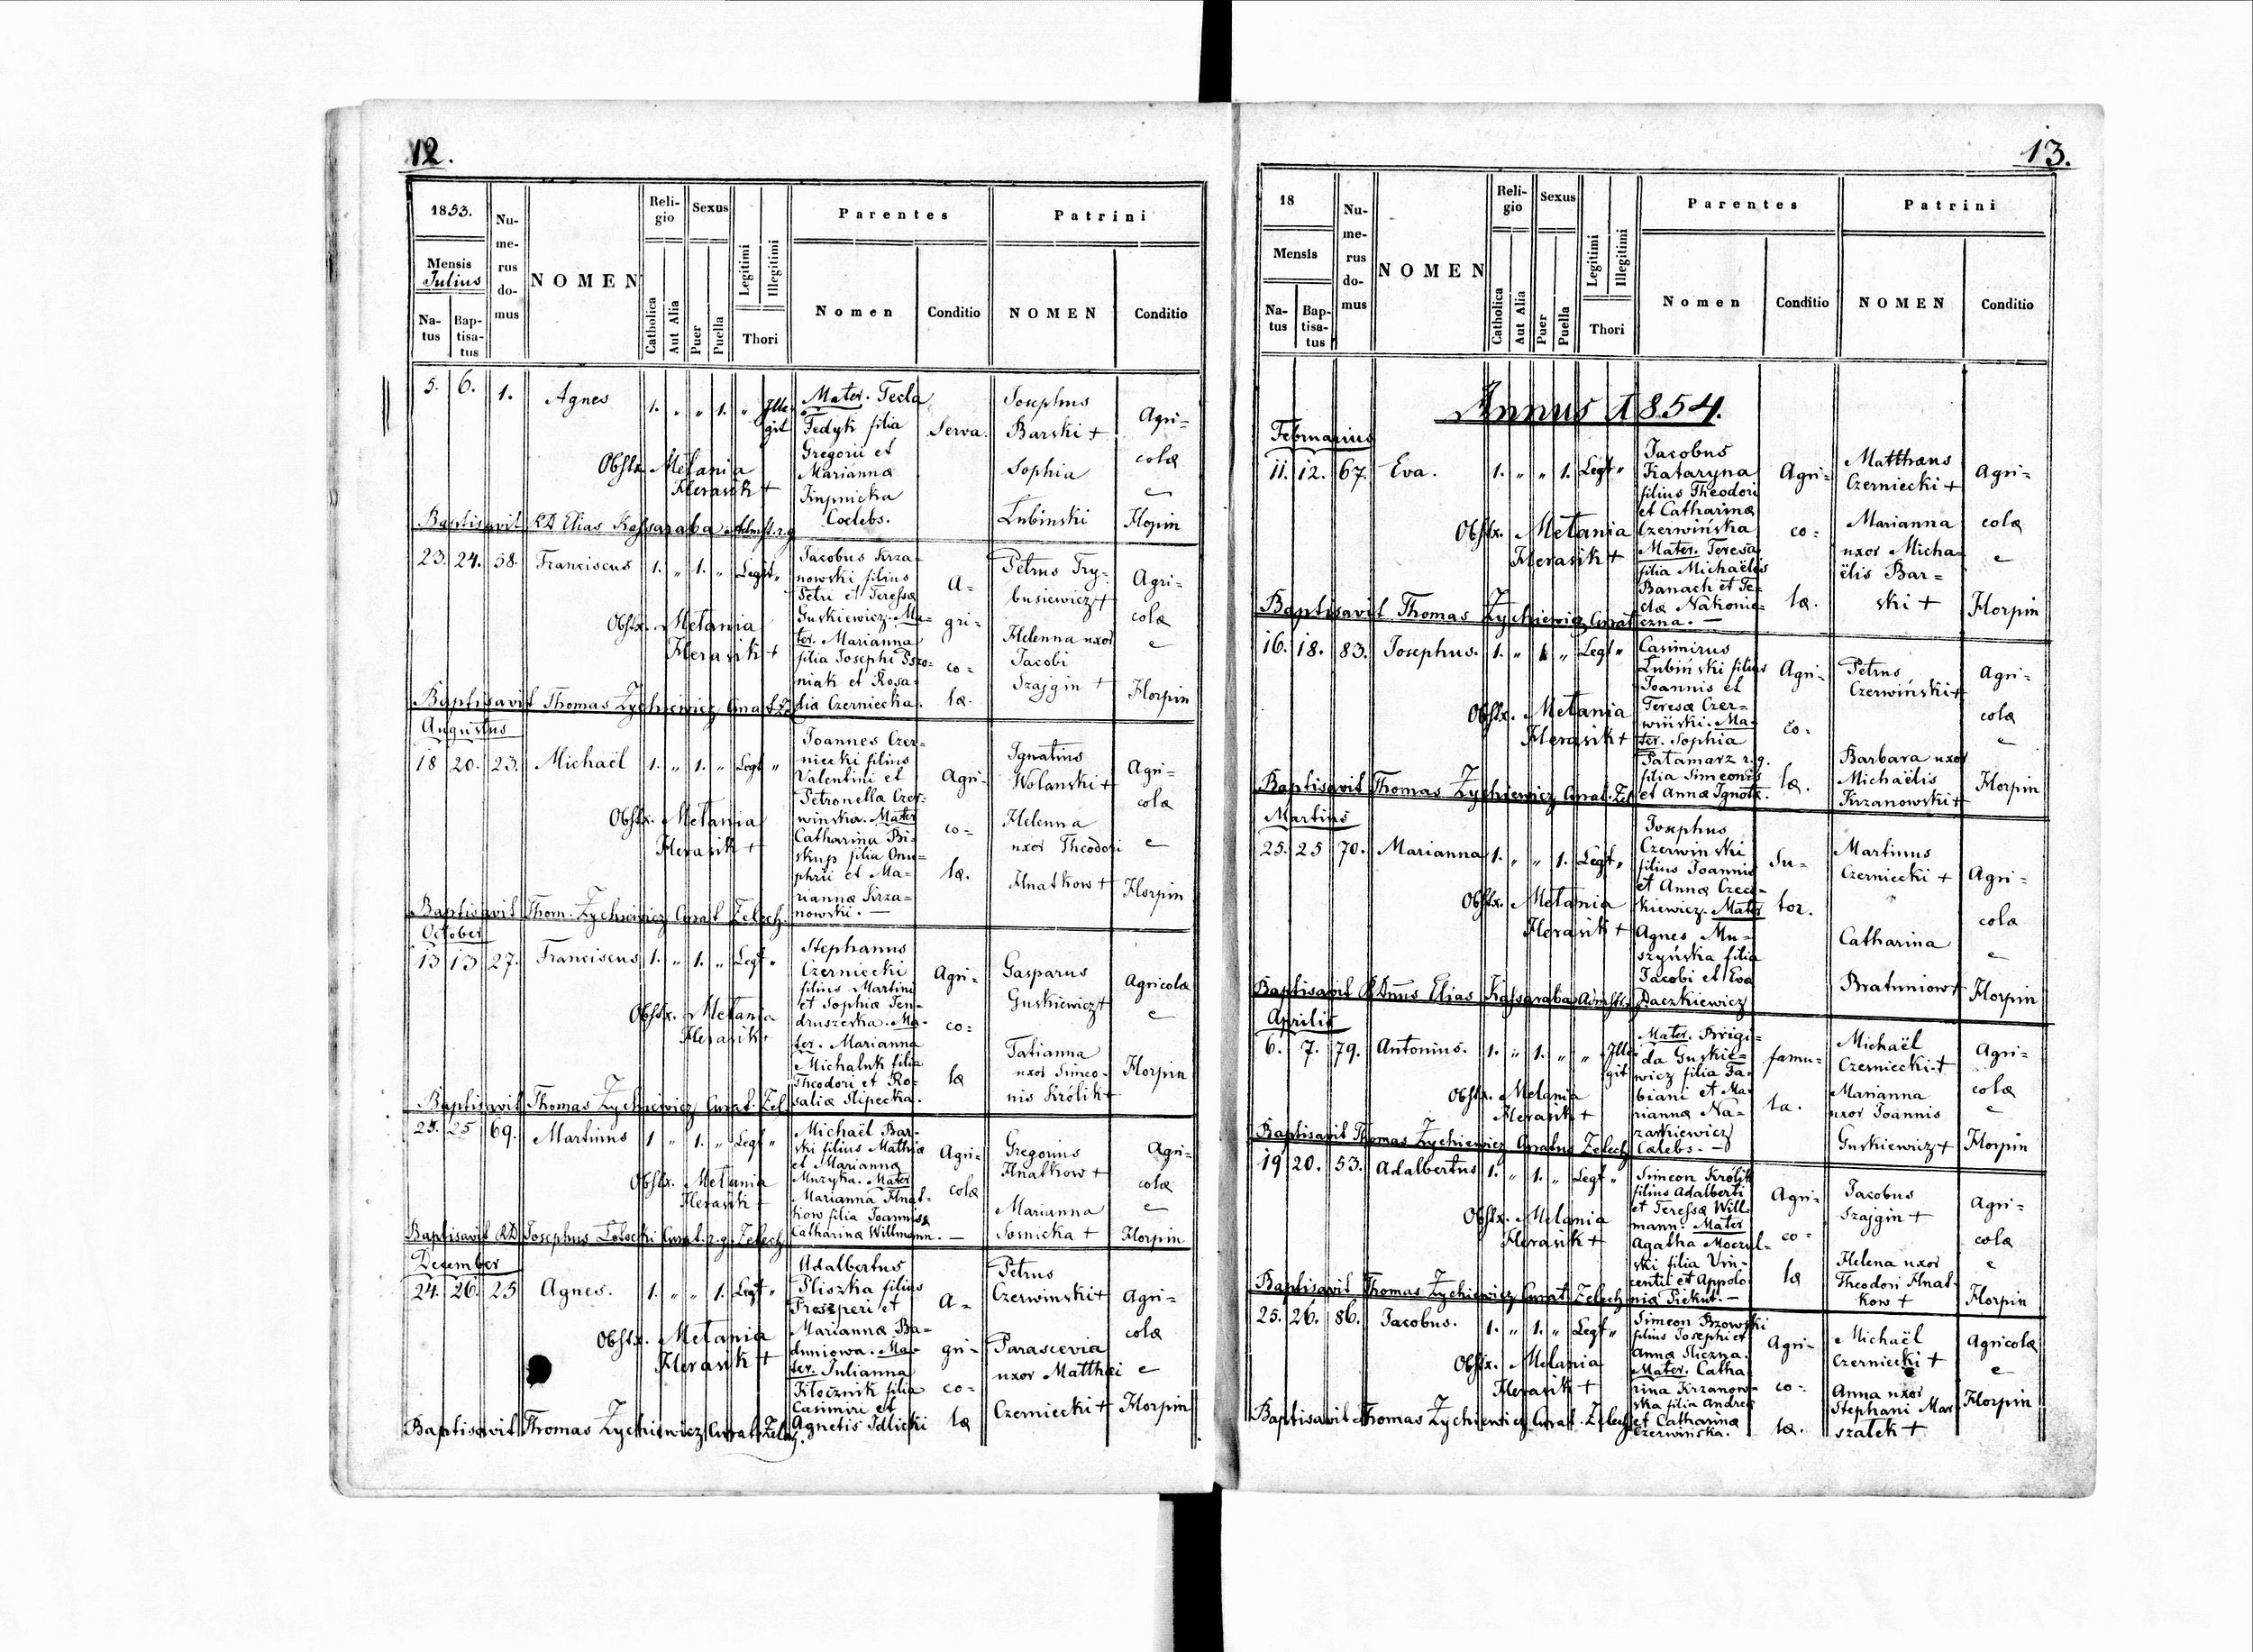 12.
1853.
Mensis
Julius
Na-
tus
Bap-
tisa-
tus
Nu-
me-
rus
do-
mus
NOMEN
Reli-
gio
Catholica
Aut Alia
Sexus
Puer
Puella
Legitimi
Illegitimi
Thori
Parentes
Nomen
Conditio
Patrini
NOMEN
Conditio
5. 6. 1. Agnes 1. „ „ 1. „ Ille-
git
Mater. Tecla
Fedyk filia
Gregorii et
Mariannæ
Coelebs.
Serva.
Josephus
Barski +
Sophia
Lubinski
Agri=
colæ
e
Hopin
Obstx. Melania
Herasik +
Baptisavit RD Elias Kassaraba Admst. r.g.
23. 24. 58. Franciscus 1. „ 1. „ Legit „
Jacobus Krza-
nowski filius
Petri et Teressæ
Guskiewicz. Ma-
ter. Marianna
filia Josephi
niak et Rosa-
lia Czerniecka.
A-
gri-
co-
la.
Petrus Try-
busiewicz +
Helenna uxor
Jacobi
Szajgin +
Agri-
colæ
e
Horpin
Obstx. Melania
Herasik +
Baptisavit Thomas Zychiewicz Curat Zel
Augustus
18 20. 23. Michaël 1. „ 1. „ Legt „
Joannes Czer=
niecki filius
Valentini et
Petronellæ Czer-
winska. Mater
Catharina Bi-
skup filia Onu=
phrii et Ma=
riannæ Krza=
nowski. —
Agri-
co-
la.
Ignatius
Wolanski +
Helenna
uxor Theodori
Hnatkow +
Agri=
colæ
e
Horpin
Obstx. Melania
Herasik +
Baptisavit Thom. Zychiewicz Curat Zelech.
October
13 13 27. Franciscus 1. „ 1. „ Legt „
Stephanus
Czerniecki
filius Martini
et Sophiæ Fen-
druszeska. Ma-
ter. Marianna
Michaluk filia
Theodori et Ro-
saliæ Slipecka.
Agri-
co=
la
Gasparus
Guskiewicz +
Tatianna
uxor Simeo-
nis Królik +
Agricolæ
e
Horpin
Obstx. Melania
Herasik +
Baptisavit Thomas Zychiewicz Curat. Zel.
25. 25 69. Martinus 1 „ 1. „ Legt „
Michaël Bar-
ski filius Mathiæ
et Mariannæ
Muzyka. Mater
Marianna Hnat-
kow filia Joannis &
Catharinæ Willmann. —
Agri-
colæ
Gregorius
Hnatkow +
Marianna
Sosnicka +
Agri-
colæ
e
Horpin
Obstx. Melania
Herasik +
Baptisavit RD Josephus Curat. r.g. Zelech
December
24. 26. 25 Agnes. 1. „ „ 1. Legt „
Adalbertus
Pliszka filius
Proszperi et
Mariannæ Ba=
duniowa. Ma-
ter. Julianna
Kłocznik filia
Casimiri et
Agnetis Idlicki
A-
gri-
co-
la
Petrus
Czerwinski +
Parascevia
uxor Matthæi
Czerniecki +
Agri=
colæ
e
Horpin
Obstx. Melania
Herasik +
Baptisavit Thomas Zychiewicz Curat Zelech.
13.
18
Mensis
Na-
tus
Bap-
tisa-
tus
Nu-
me-
rus
do-
mus
NOMEN
Reli-
gio
Catholica
Aut Alia
Sexus
Puer
Puella
Legitimi
Illegitimi
Thori
Parentes
Nomen
Conditio
Patrini
NOMEN
Conditio
Annus 1854.
Februarius
11. 12. 67. Eva. 1. „ „ 1. Legt „
Jacobus
Kataryna
filius Theodori
et Catharinæ
Czerwińska
Mater. Teresa
filia Michaëlis
Banach et Te-
clæ Nakonie-
czna. —
Agri-
co=
la.
Matthæus
Czerniecki +
Marianna
uxor Micha-
ëlis Bar=
ski +
Agri-
colæ
e
Horpin
Obstx. Melania
Herasik +
Baptisavit Thomas Zychiewicz Curat
16. 18. 83. Josephus. 1. „ 1. „ Legt „
Casimirus
Lubiński filius
Joannis et
Teresæ Czer=
wiński. Ma-
ter. Sophia
Patamarz r.g.
filia Simeonis
et Annæ Ignotæ.
Agri-
co-
la.
Petrus
Czerwiński +
Barbara uxor
Michaëlis
Krzanowski +
Agri-
colæ
e
Horpin
Obstx. Melania
Herasik +
Baptisavit Thomas Zychiewicz Curat. Zel
Martius
25. 25 70. Marianna 1. „ „ 1. Legt „
Josephus
Czerwinski
filius Joannis
et Annæ Czecz-
kiewicz. Mater
Agnes Mu=
szyńska filia
Jacobi et Eva
Daczkiewicz
Su-
tor.
Martinus
Czerniecki +
Catharina
Bratuniow +
Agri-
colæ
e
Horpin
Obstx. Melania
Herasik +
Baptisavit RDnus Elias Kassaraba Admst.
Aprilis
6. 7. 79. Antonius. 1. „ 1. „ „ Ille-
git
Mater. Brigi-
da Guskie=
wicz filia Fa-
biani et Ma-
riannæ Na=
zarkiewicz
Cælebs. —
famu-
la.
Michaël
Czerniecki +
Marianna
uxor Joannis
Guskiewicz +
Agri-
colæ
e
Horpin
Obstx. Melania
Herasik +
Baptisavit Thomas Zychiewicz Curatus Zelech
19 20. 53. Adalbertus 1. „ 1. „ Legt „
Simeon Królik
filius Adalberti
et Teressæ Will-
mann. Mater
Agatha Moczul-
ski filia Vin-
centii et Appolo-
niæ Piekut. —
Agri-
co-
la
Jacobus
Szajgin +
Helena uxor
Theodori Hnat-
kow +
Agri-
colæ
e
Horpin
Obstx. Melania
Herasik +
Baptisavit Thomas Zychiewicz Curat. Zelech
25. 26. 86. Jacobus. 1. „ 1. „ Legt „
Simeon Bzowski
filius Josephi et
Annæ Sliczna.
Mater. Catha
rina Krzanow-
ska filia Andreæ
et Catharinæ
Czerwińska.
Agri-
co-
la.
Michaël
Czerniecki +
Anna uxor
Stephani Mar
szałek +
Agricolæ
e
Horpin
Obstx. Melania
Herasik +
Baptisavit Thomas Zychiewicz Curat. Zelech